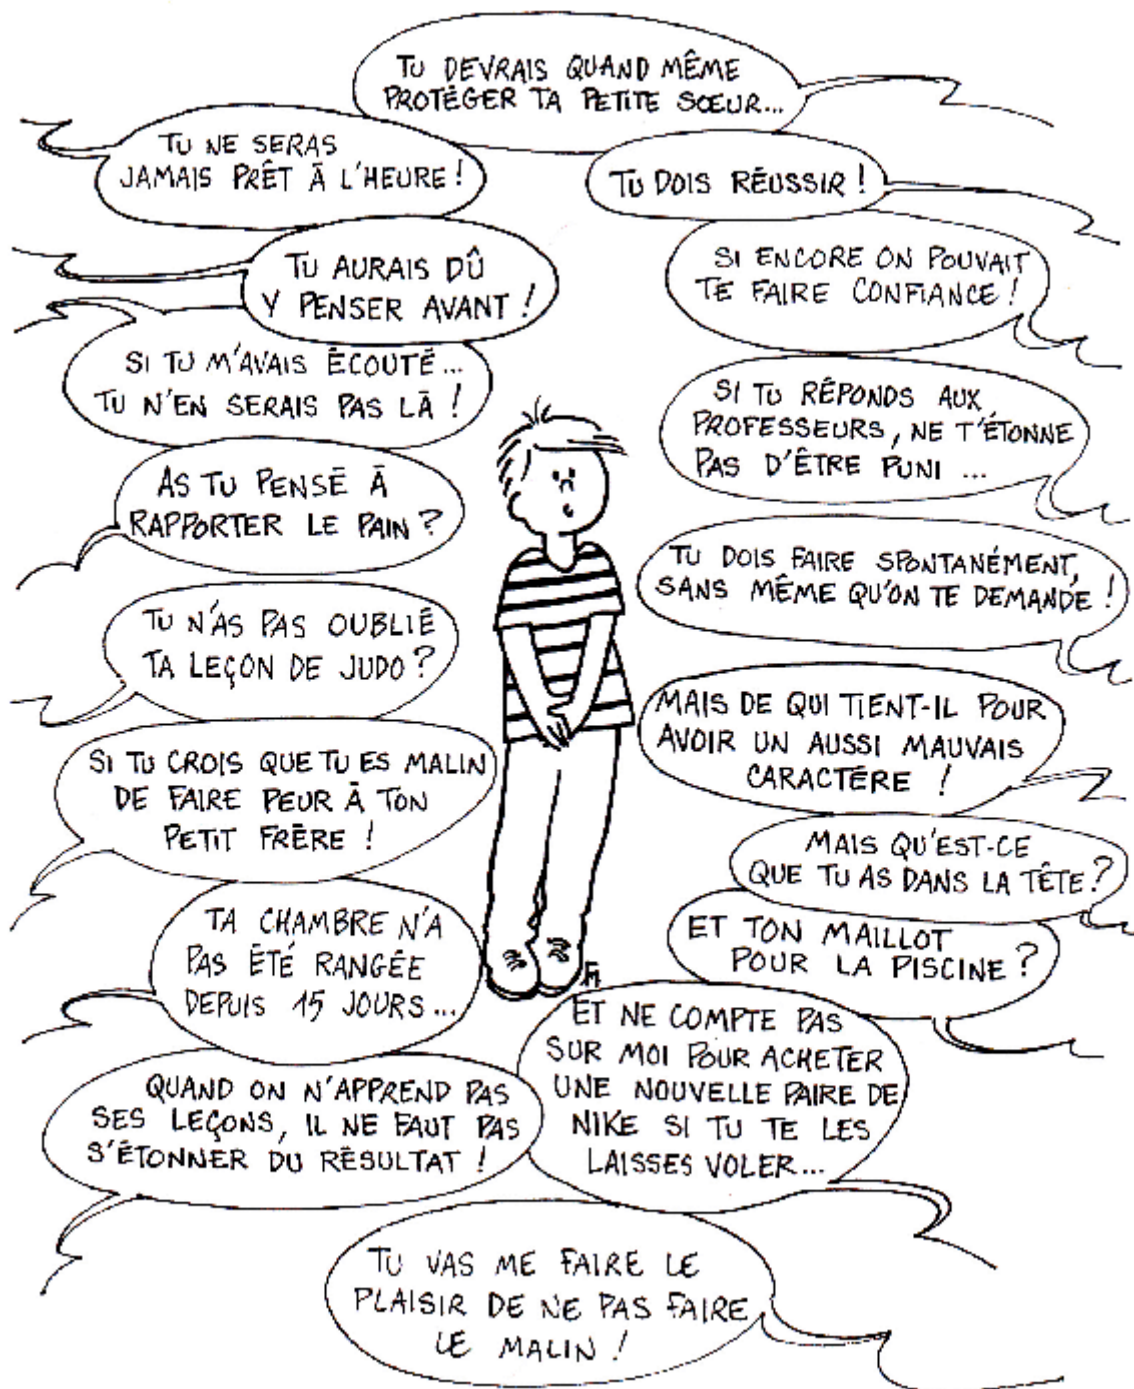 TU DEVRAIS QUAND MÊME
PROTÉGER TA PETITE SŒUR...
TU NE SERAS
JAMAIS PRÊT À L'HEURE !
TU DOIS RÉUSSIR !
TU AURAIS DÛ
Y PENSER AVANT !
SI ENCORE ON POUVAIT
TE FAIRE CONFIANCE !
SI TU M'AVAIS ÉCOUTÉ...
TU N'EN SERAIS PAS LÀ !
SI TU RÉPONDS AUX
PROFESSEURS, NE T'ÉTONNE
PAS D'ÊTRE PUNI ...
AS TU PENSÉ À
RAPPORTER LE PAIN ?
TU DOIS FAIRE SPONTANÉMENT,
SANS MÊME QU'ON TE DEMANDE !
TU N'AS PAS OUBLIÉ
TA LEÇON DE JUDO ?
MAIS DE QUI TIENT-IL POUR
AVOIR UN AUSSI MAUVAIS
CARACTÉRE !
SI TU CROIS QUE TU ES MALIN
DE FAIRE PEUR À TON
PETIT FRÈRE !
MAIS QU'EST-CE
QUE TU AS DANS LA TÊTE ?
TA CHAMBRE N'A
PAS ÉTÉ RANGÉE
DEPUIS 15 JOURS...
ET TON MAILLOT
POUR LA PISCINE ?
ET NE COMPTE PAS
SUR MOI POUR ACHETER
UNE NOUVELLE PAIRE DE
NIKE SI TU TE LES
LAISSES VOLER...
QUAND ON N'APPREND PAS
SES LEÇONS, IL NE FAUT PAS
S'ÉTONNER DU RÉSULTAT !
TU VAS ME FAIRE LE
PLAISIR DE NE PAS FAIRE
LE MALIN !